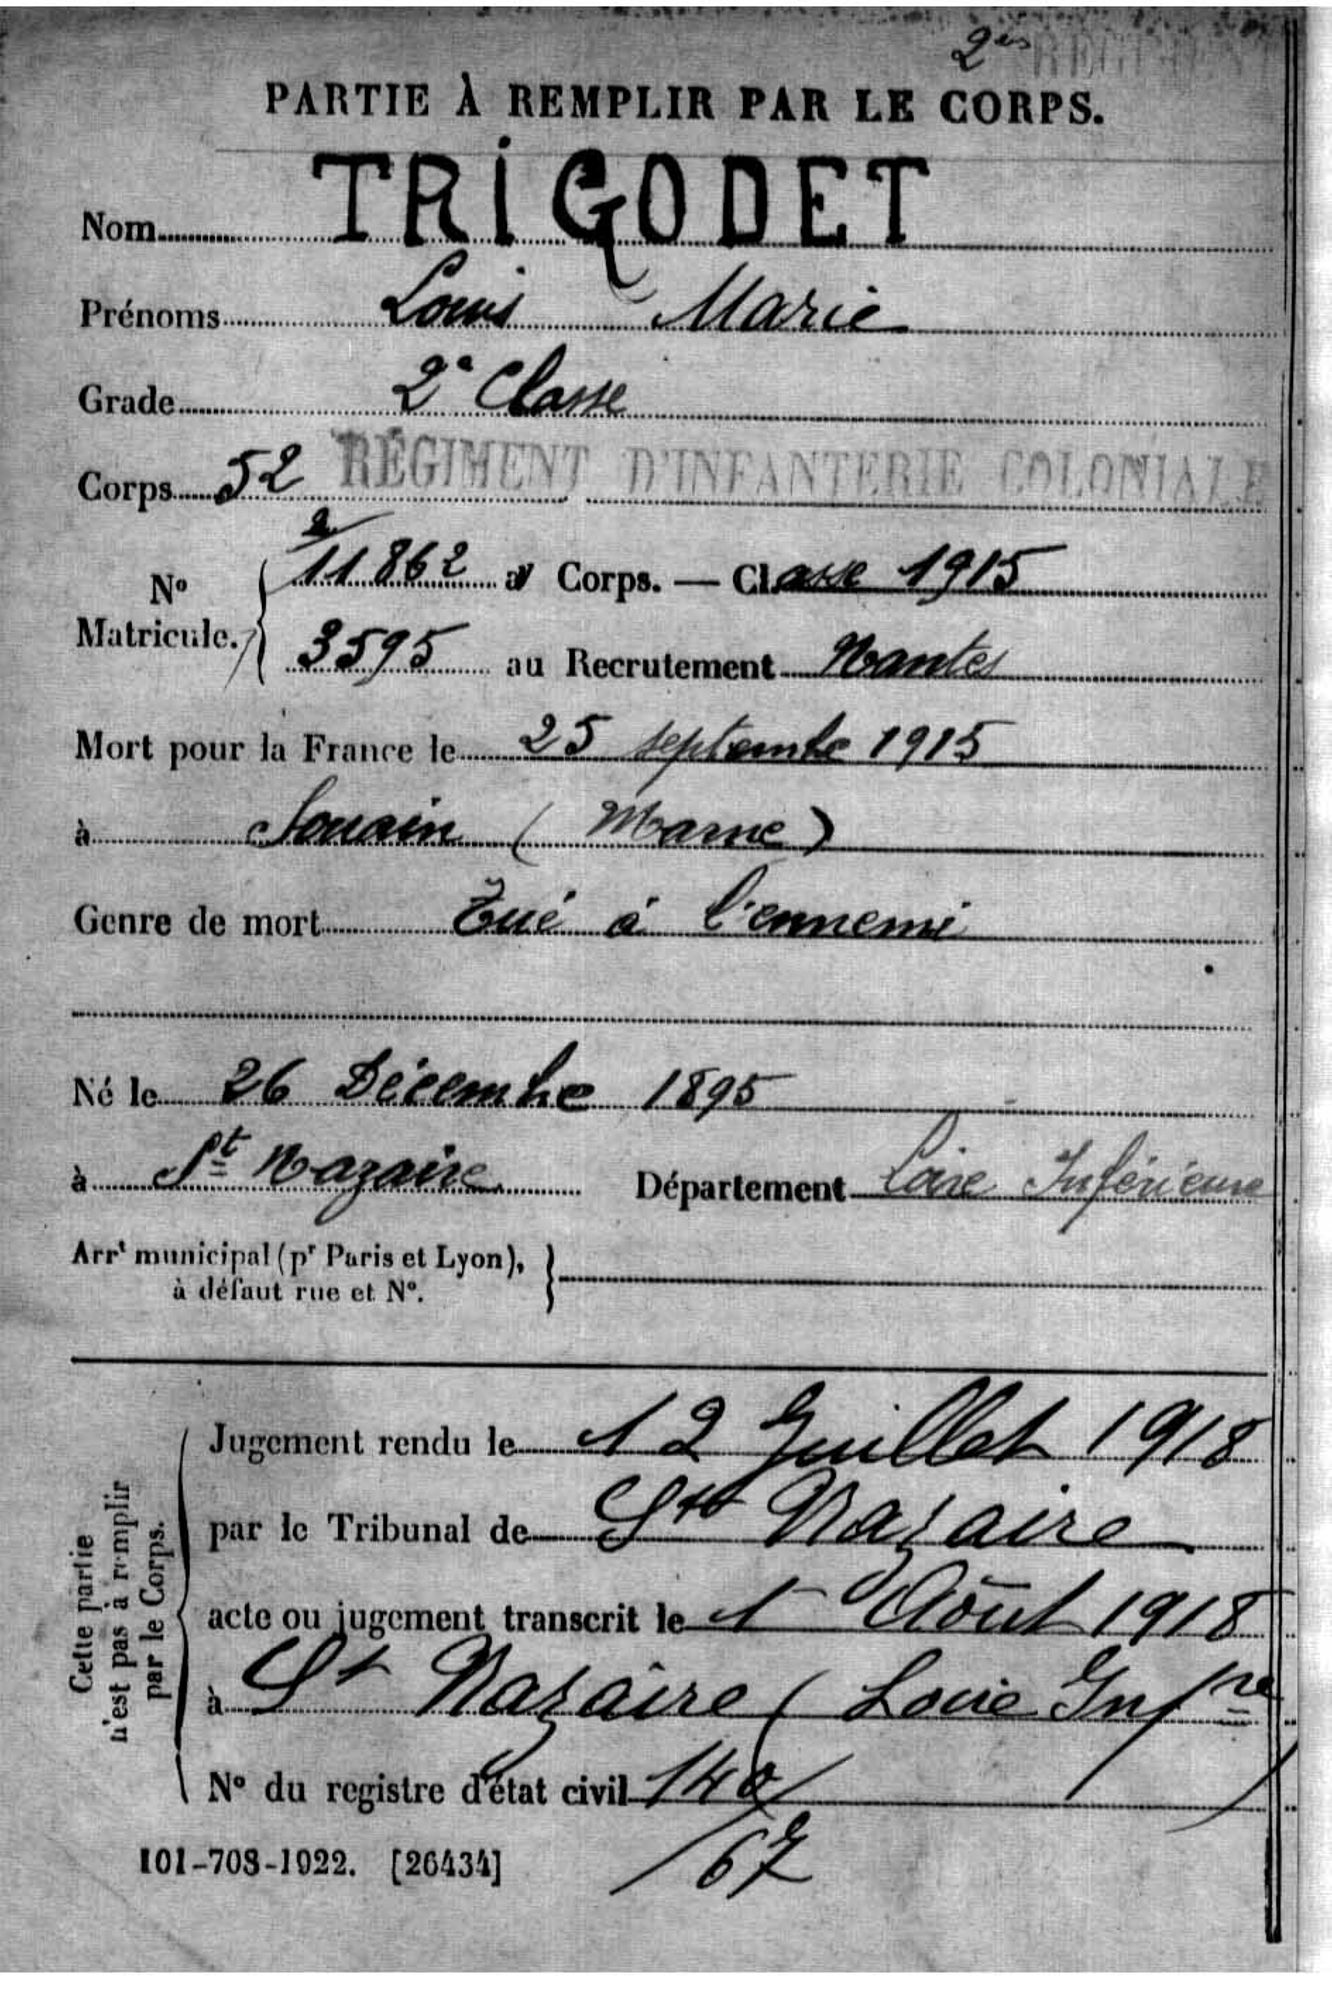 2es REGIMENT
PARTIE À REMPLIR PAR LE CORPS.
Nom TRIGODET
Prénoms Louis Marie
Grade 2e Classe
Corps 52 RÉGIMENT D'INFANTERIE COLONIALE
No Matricule. 2/11862 au Corps. — Classe 1915
3595 au Recrutement Nantes
Mort pour la France le 25 septembre 1915
à Souain (Marne)
Genre de mort Tué à l'ennemi
Né le 26 Décembre 1895
à St Nazaire Département Loire Inférieure
Arrt municipal (pr Paris et Lyon),
à défaut rue et No.
Cette partie
n'est pas à remplir
par le Corps.
Jugement rendu le 12 Juillet 1918
par le Tribunal de St Nazaire
acte ou jugement transcrit le 1 Août 1918
à St Nazaire (Loire Infre)
No du registre d'état civil 140/
/67
101-708-1922. [26434]